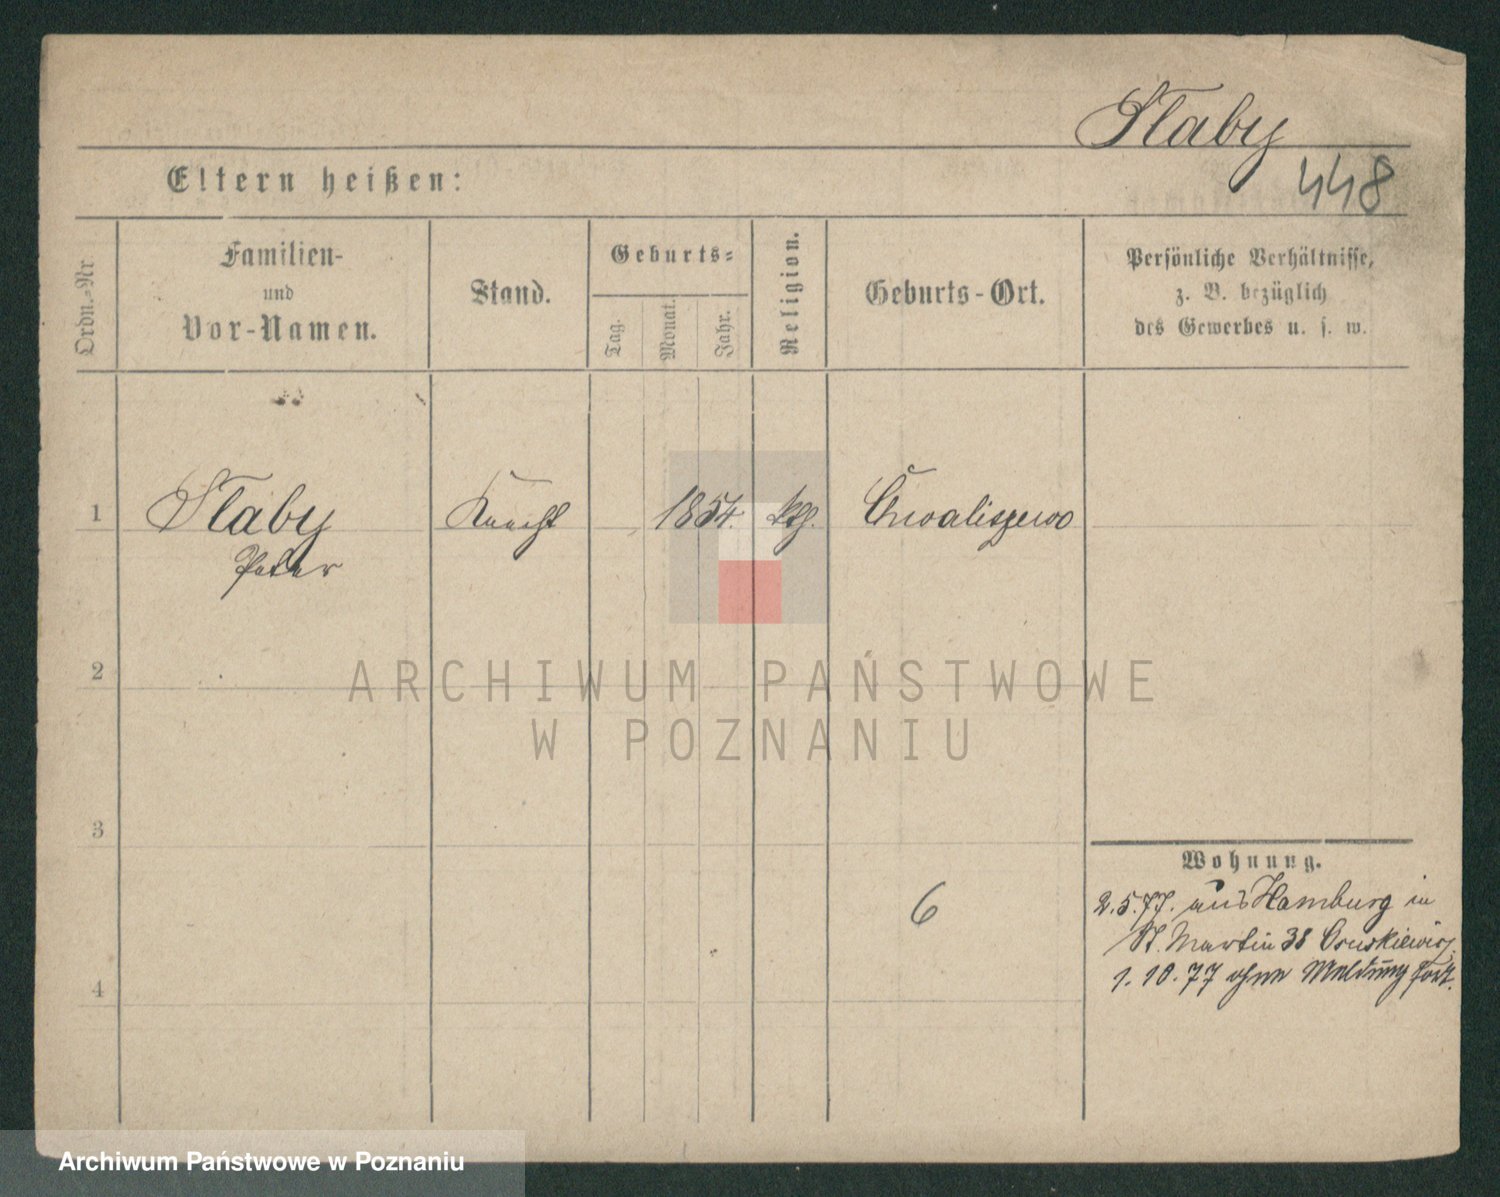 Slaby
448
Eltern heißen:
Ordn.-Nr.
Familien-
und
Vor-Namen.
Stand.
Geburts-
Tag.
Monat.
Jahr.
Religion.
Geburts-Ort.
Persönliche Verhältnisse,
z. B. bezüglich
des Gewerbes u. s. w.
1
Slaby
Peter
Knecht
1854.
kth.
Chwaliszewo
2
ARCHIWUM PAŃSTWOWE
W POZNANIU
3
Wohnung.
6
2.5.77. aus Hamburg in
St. Martin 38
1.10.77 ohne Meldung fort.
4
Archiwum Państwowe w Poznaniu